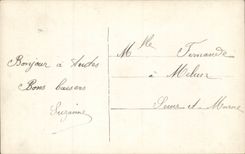 Bonjour à toutes
Bons baisers
Suzanne
Mlle Fernande
à Melun
Seine et Marne